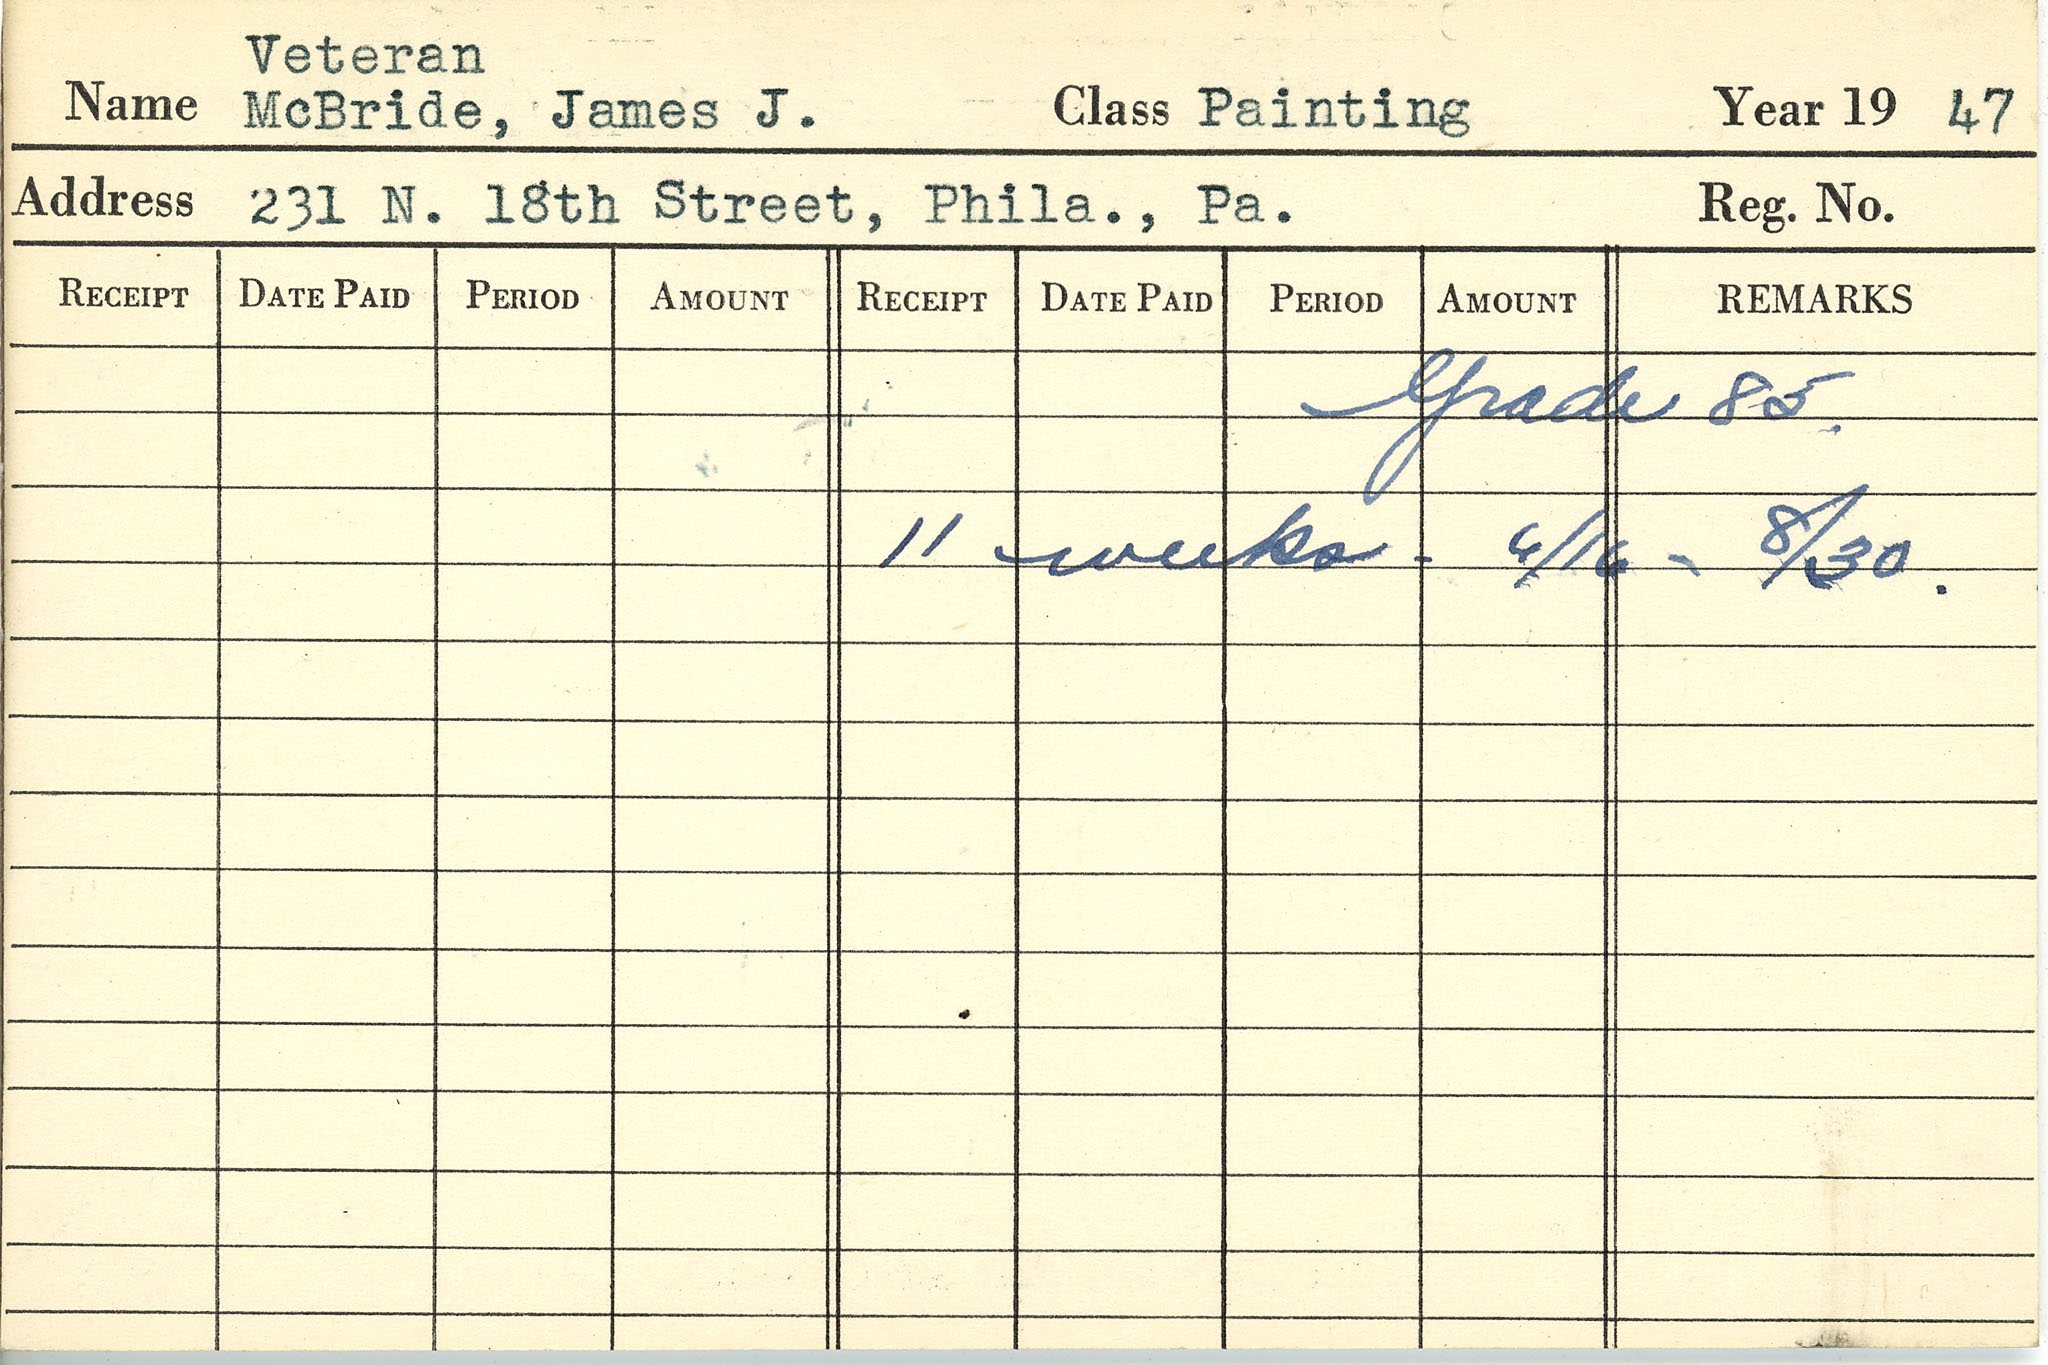 Veteran
Name McBride, James J. Class Painting Year 19 47
Address 231 N. 18th Street, Phila., Pa. Reg. No.
RECEIPT DATE PAID PERIOD AMOUNT RECEIPT DATE PAID PERIOD AMOUNT REMARKS
Grade 85.
11 weeks - 6/16 - 8/30.